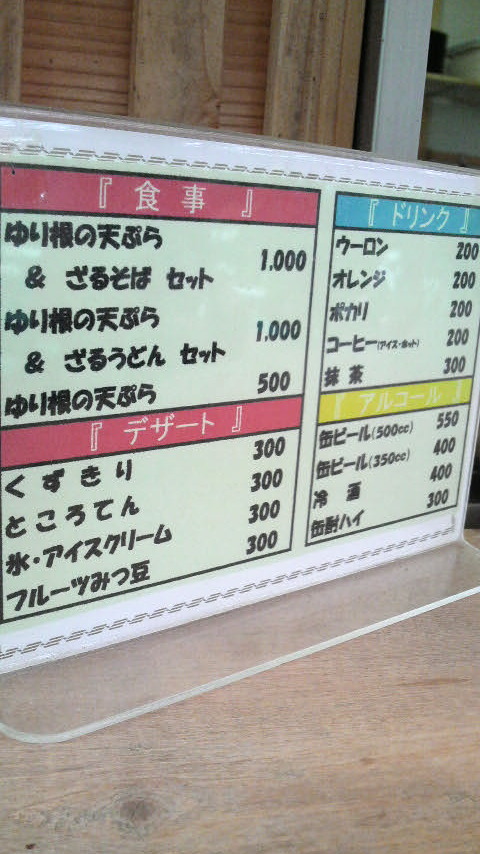 『 食 事 』
ゆり根の天ぷら
& ざるそば セット 1.000
ゆり根の天ぷら
& ざるうどん セット 1.000
ゆり根の天ぷら 500
『 デザート 』
くずきり 300
ところてん 300
氷・アイスクリーム 300
フルーツみつ豆 300
『 ドリンク 』
ウーロン 200
オレンジ 200
ポカリ 200
コーヒー(アイス・ホット) 200
抹 茶 300
『 アルコール 』
缶ビール(500cc) 550
缶ビール(350cc) 400
冷 酒 400
缶酎ハイ 300